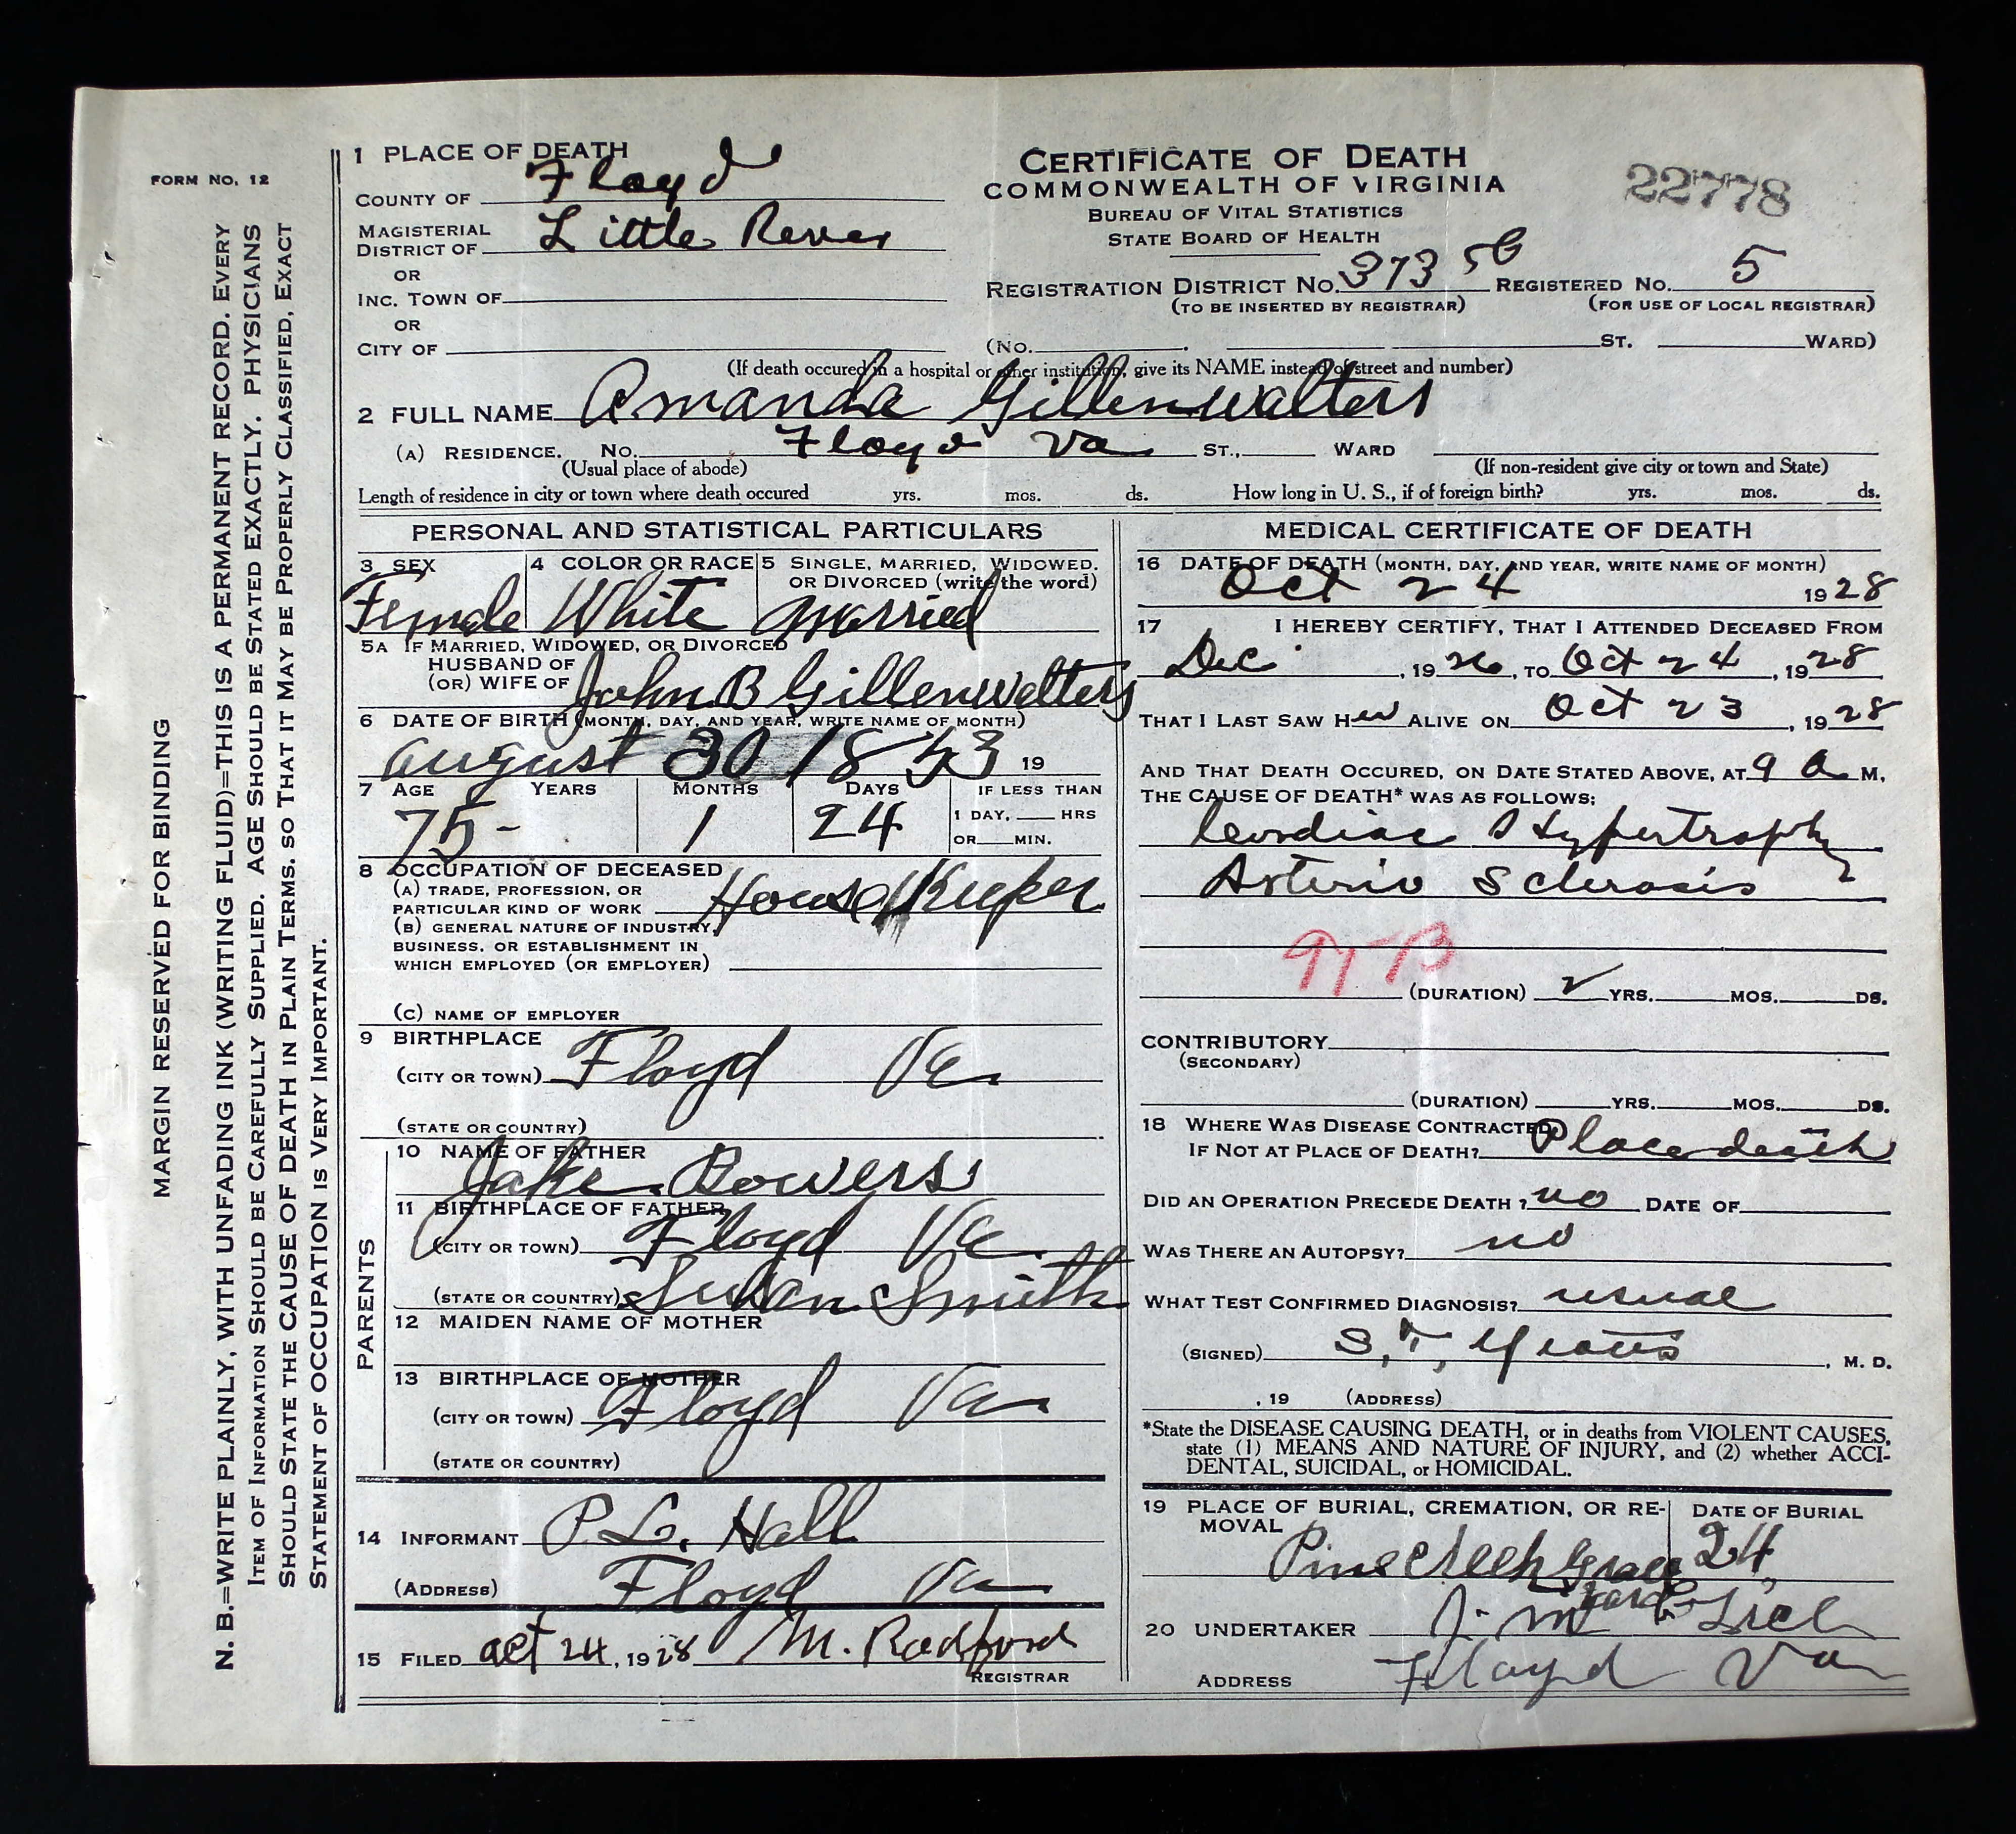 FORM NO. 12
MARGIN RESERVED FOR BINDING
N. B.=WRITE PLAINLY, WITH UNFADING INK (WRITING FLUID)=THIS IS A PERMANENT RECORD. EVERY
ITEM OF INFORMATION SHOULD BE CAREFULLY SUPPLIED. AGE SHOULD BE STATED EXACTLY. PHYSICIANS
SHOULD STATE THE CAUSE OF DEATH IN PLAIN TERMS. SO THAT IT MAY BE PROPERLY CLASSIFIED, EXACT
STATEMENT OF OCCUPATION IS VERY IMPORTANT.
1 PLACE OF DEATH
COUNTY OF Floyd
MAGISTERIAL
DISTRICT OF Little River
OR
INC. TOWN OF
OR
CITY OF
CERTIFICATE OF DEATH
COMMONWEALTH OF VIRGINIA
BUREAU OF VITAL STATISTICS
STATE BOARD OF HEALTH
22778
REGISTRATION DISTRICT NO. 373 REGISTERED NO. 5
(TO BE INSERTED BY REGISTRAR) (FOR USE OF LOCAL REGISTRAR)
(NO. ST. WARD)
(If death occured in a hospital or other institution, give its NAME instead of street and number)
2 FULL NAME Amanda Gillenwalters
(A) RESIDENCE. NO. Floyd Va ST., WARD
(Usual place of abode) (If non-resident give city or town and State)
Length of residence in city or town where death occured yrs. mos. ds. How long in U. S., if of foreign birth? yrs. mos. ds.
PERSONAL AND STATISTICAL PARTICULARS
3 SEX 4 COLOR OR RACE 5 SINGLE, MARRIED, WIDOWED,
OR DIVORCED (write the word)
Female White Married
5A IF MARRIED, WIDOWED, OR DIVORCED
HUSBAND OF
(OR) WIFE OF John B Gillenwelters
6 DATE OF BIRTH (MONTH, DAY, AND YEAR, WRITE NAME OF MONTH)
August 30 1853 19
7 AGE YEARS MONTHS DAYS IF LESS THAN
75- 1 24 1 DAY, HRS
OR MIN.
8 OCCUPATION OF DECEASED
(A) TRADE, PROFESSION, OR
PARTICULAR KIND OF WORK House Keeper
(B) GENERAL NATURE OF INDUSTRY,
BUSINESS, OR ESTABLISHMENT IN
WHICH EMPLOYED (OR EMPLOYER)
(C) NAME OF EMPLOYER
9 BIRTHPLACE
(CITY OR TOWN) Floyd Va
(STATE OR COUNTRY)
PARENTS
10 NAME OF FATHER
Jake Bowers
11 BIRTHPLACE OF FATHER
(CITY OR TOWN) Floyd Va
(STATE OR COUNTRY) Susan Smith
12 MAIDEN NAME OF MOTHER
13 BIRTHPLACE OF MOTHER
(CITY OR TOWN) Floyd Va
(STATE OR COUNTRY)
14 INFORMANT P. L. Hall
(ADDRESS) Floyd Va
15 FILED Oct 24, 1928 M. Radford
REGISTRAR
MEDICAL CERTIFICATE OF DEATH
16 DATE OF DEATH (MONTH, DAY, AND YEAR, WRITE NAME OF MONTH)
Oct 24 1928
17 I HEREBY CERTIFY, THAT I ATTENDED DECEASED FROM
Dec , 1926, TO Oct 24, 1928
THAT I LAST SAW HER ALIVE ON Oct 23, 1928
AND THAT DEATH OCCURED, ON DATE STATED ABOVE, AT 9 a M.
THE CAUSE OF DEATH* WAS AS FOLLOWS:
Cardiac Hypertrophy
Arterio Sclerosis
(DURATION) 2 YRS. MOS. DS.
CONTRIBUTORY
(SECONDARY)
(DURATION) YRS. MOS. DS.
18 WHERE WAS DISEASE CONTRACTED
IF NOT AT PLACE OF DEATH? Place death
DID AN OPERATION PRECEDE DEATH? no DATE OF
WAS THERE AN AUTOPSY? no
WHAT TEST CONFIRMED DIAGNOSIS? usual
(SIGNED) S. T. , M. D.
, 19 (ADDRESS)
*State the DISEASE CAUSING DEATH, or in deaths from VIOLENT CAUSES,
state (1) MEANS AND NATURE OF INJURY, and (2) whether ACCI-
DENTAL, SUICIDAL, or HOMICIDAL.
19 PLACE OF BURIAL, CREMATION, OR RE- DATE OF BURIAL
MOVAL
Pine Creek Grave 24,
yard
20 UNDERTAKER J. M.
ADDRESS Floyd Va